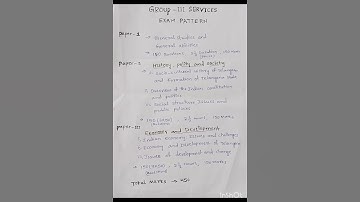 GROUP-III SERVICES
EXAM PATTERN
Paper-1
General Studies and
General abilities
150 Questions, 2½ duration, 150 marks
Paper-2
History, polity and society
i) Socio-cultural History of Telangana
and formation of Telangana state
ii) Overview of the Indian constitution
and politics
iii) Social structure, Issues and
public policies
150 2½ hours, 150 marks
Paper-III
Economy and Development
i) Indian economy, Issues and challenges
ii) Economy and Development of Telangana
iii) Issues of development and change
150 2½ hours, 150 marks
Total Marks → 450
InShOt